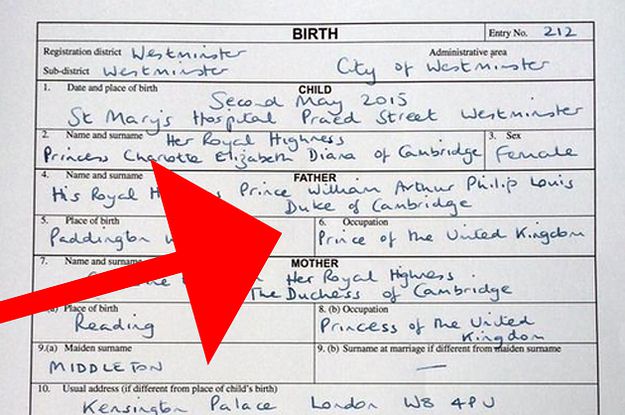 BIRTH Entry No. 212
Registration district Westminster Administrative area
Sub-district Westminster City of Westminster
1. Date and place of birth CHILD
Second May 2015
St Mary's Hospital Praed Street Westminster
2. Name and surname Her Royal Highness 3. Sex
Princess Charlotte Elizabeth Diana of Cambridge Female
4. Name and surname FATHER
His Royal Prince William Arthur Philip Louis
Duke of Cambridge
5. Place of birth 6. Occupation
Paddington Prince of the United Kingdom
7. Name and surname MOTHER
Her Royal Highness
The Duchess of Cambridge
Place of birth 8. (b) Occupation
Reading Princess of the United
Kingdom
9.(a) Maiden surname 9. (b) Surname at marriage if different from maiden surname
MIDDLETON —
10. Usual address (if different from place of child's birth)
Kensington Palace London W8 4PU